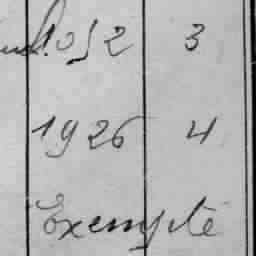 1052 3
1926 4
Exempte